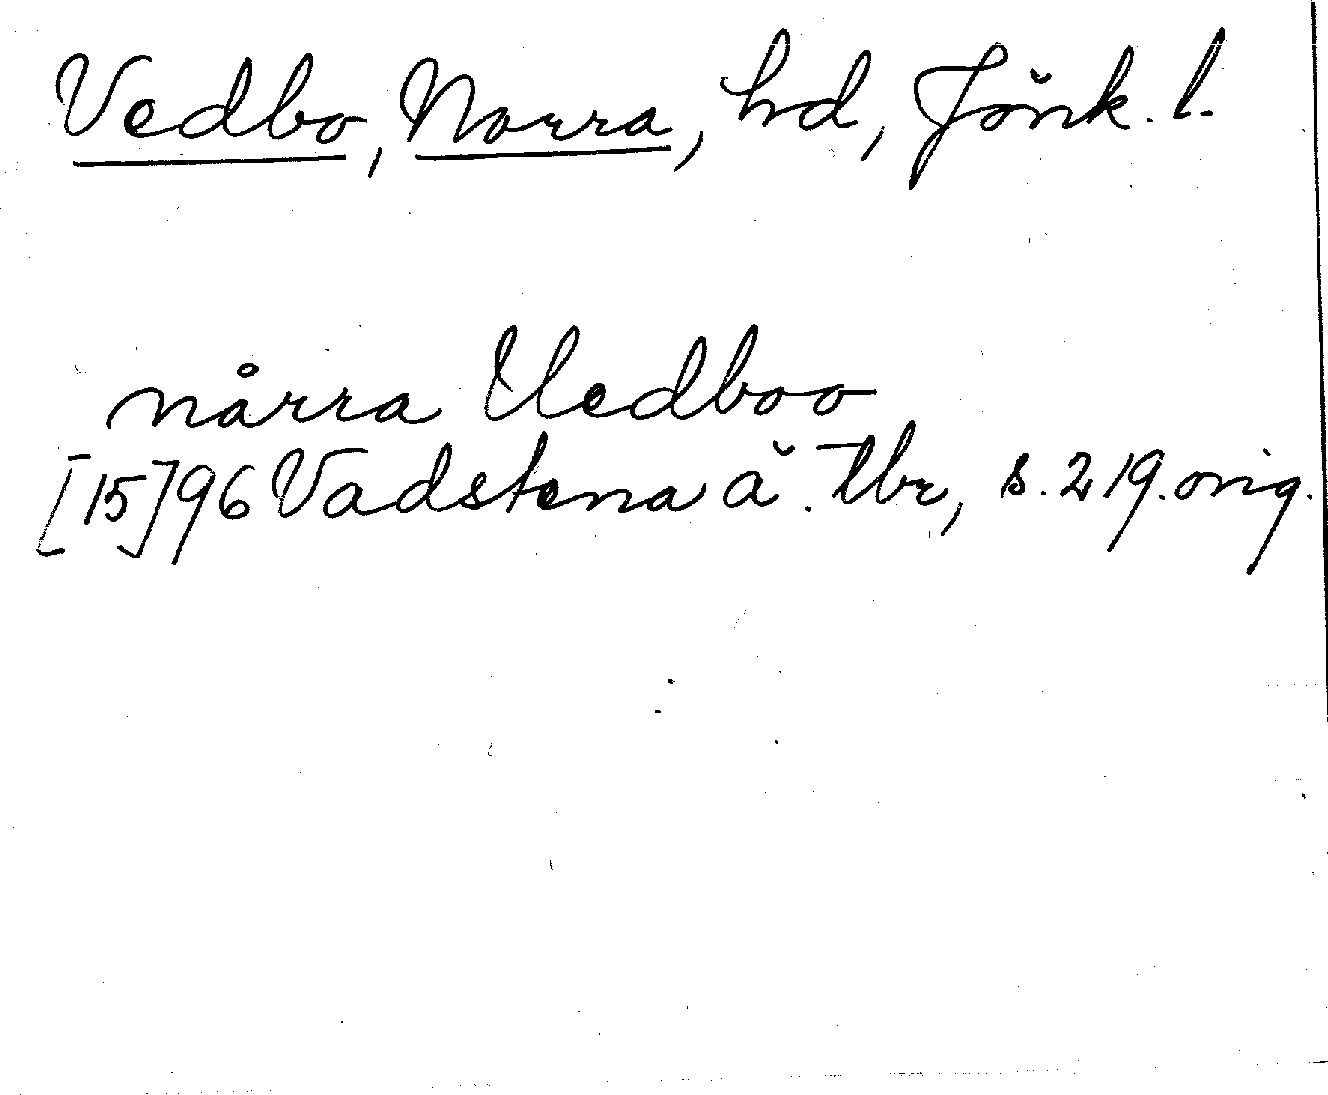 Vedbo, Norra, hd, Jönk. l.
nårra Uedboo
[15]96 Vadstena ä. Tbr, s. 219. orig.